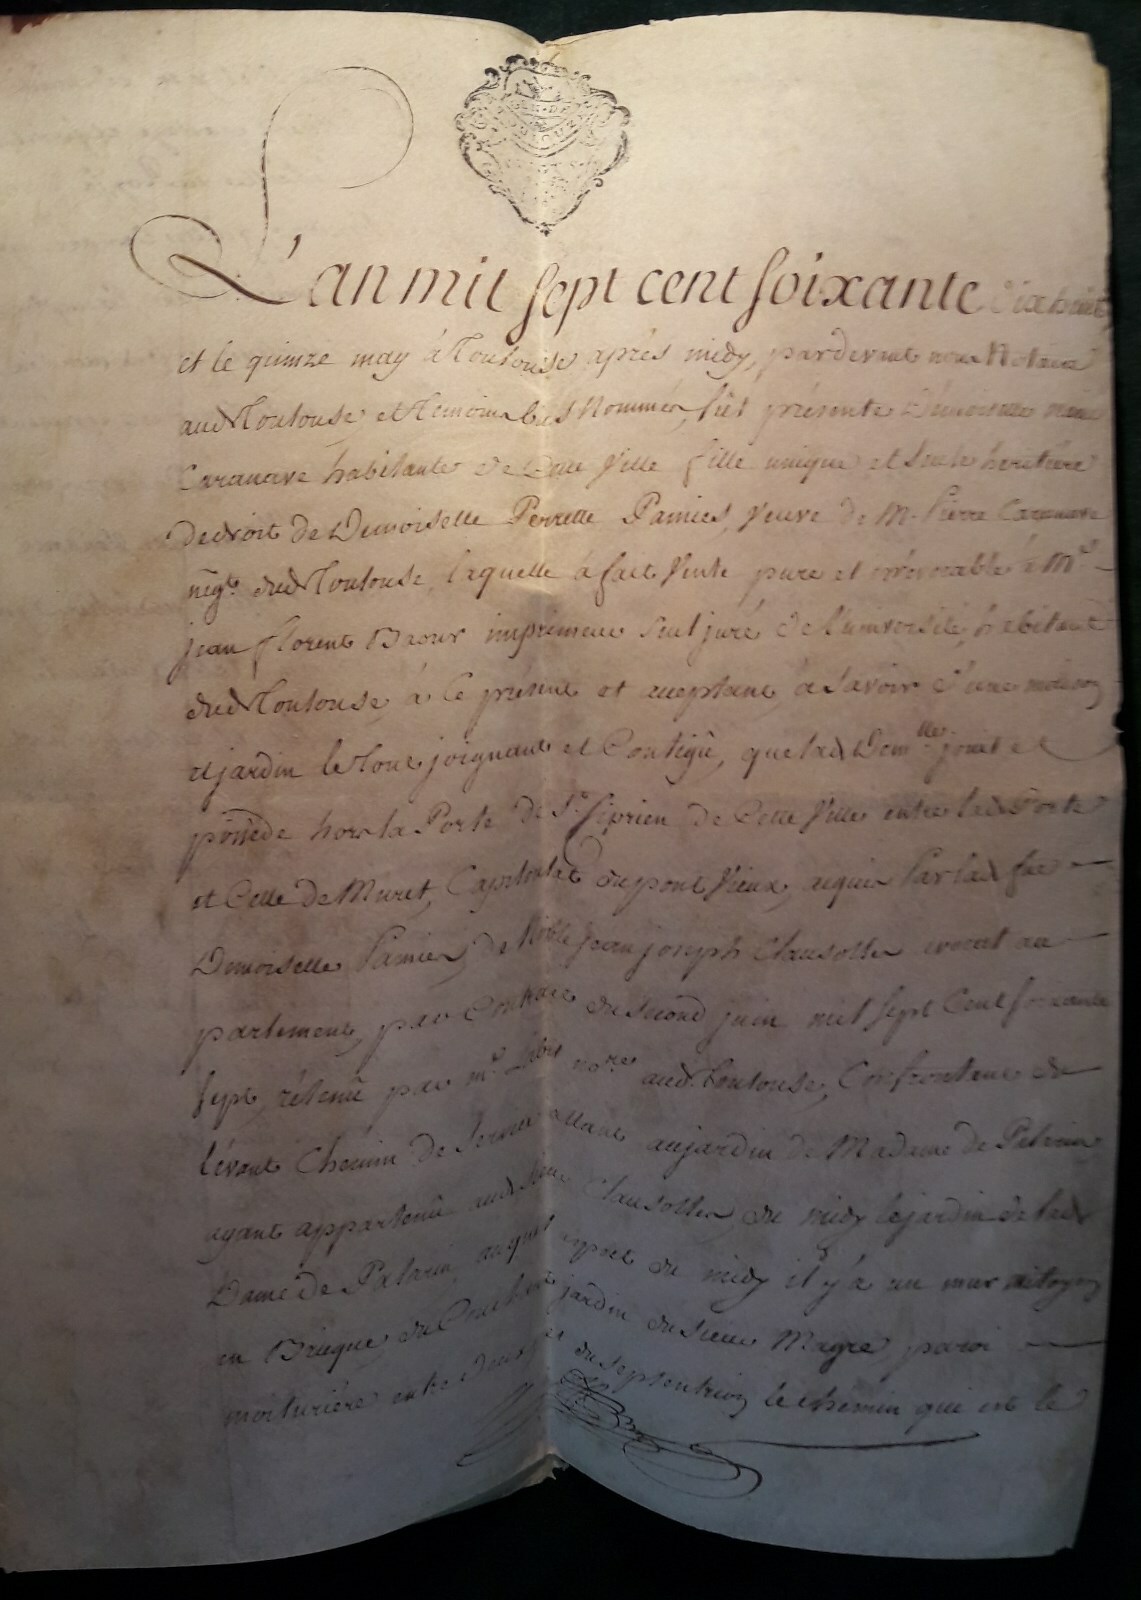 GEN. DE
TOULOUZE
L'an mil sept cent soixante dixhuit
et le quinze may à Toulouse après midy, pardevant nous Notaire
aud. Toulouse et temoins bas Nommés, fût présente Demoiselle
Caranave habitante de Cette Ville fille unique et seule heritiere
de droit de Demoiselle Perrette Pamies, Veuve de Mr. Pierre Caranave
negt. dud. Toulouse, laquelle à fait Vente pure et irrévocable à Mr.
jean florent Baour imprimeur seul juré de l'université, habitant
dud. Toulouse, à ce présent et aceptant, àsavoir d'une maison
et jardin le tout joignant et Contigû, que lad. Demlle. jouit et
posséde hors la Porte de St. Siprien de Cette Ville entre lad. Porte
et Celle de Muret, Capitoulat du pont Vieux, aquis Par lad. feue
Demoiselle Pamies, de Noble jean joseph Clausolles avocat au
parlement, par Contract du second juin mil sept Cent soixante
sept, rétenû par Me. nore. aud. Toulouse, Confrontant du
lévant Chemin de Service allant au jardin de Madame de Palarin
ayant appartenû aud. sieur Clausolles, du midy le jardin de lad.
Dame de Palarin, auquel aspect du midy il y'a un mur mitoyen
en Brique, du Couchant jardin du sieur Magre, paroi
moiturière entre deux, et du septentrion le chemin qui est le